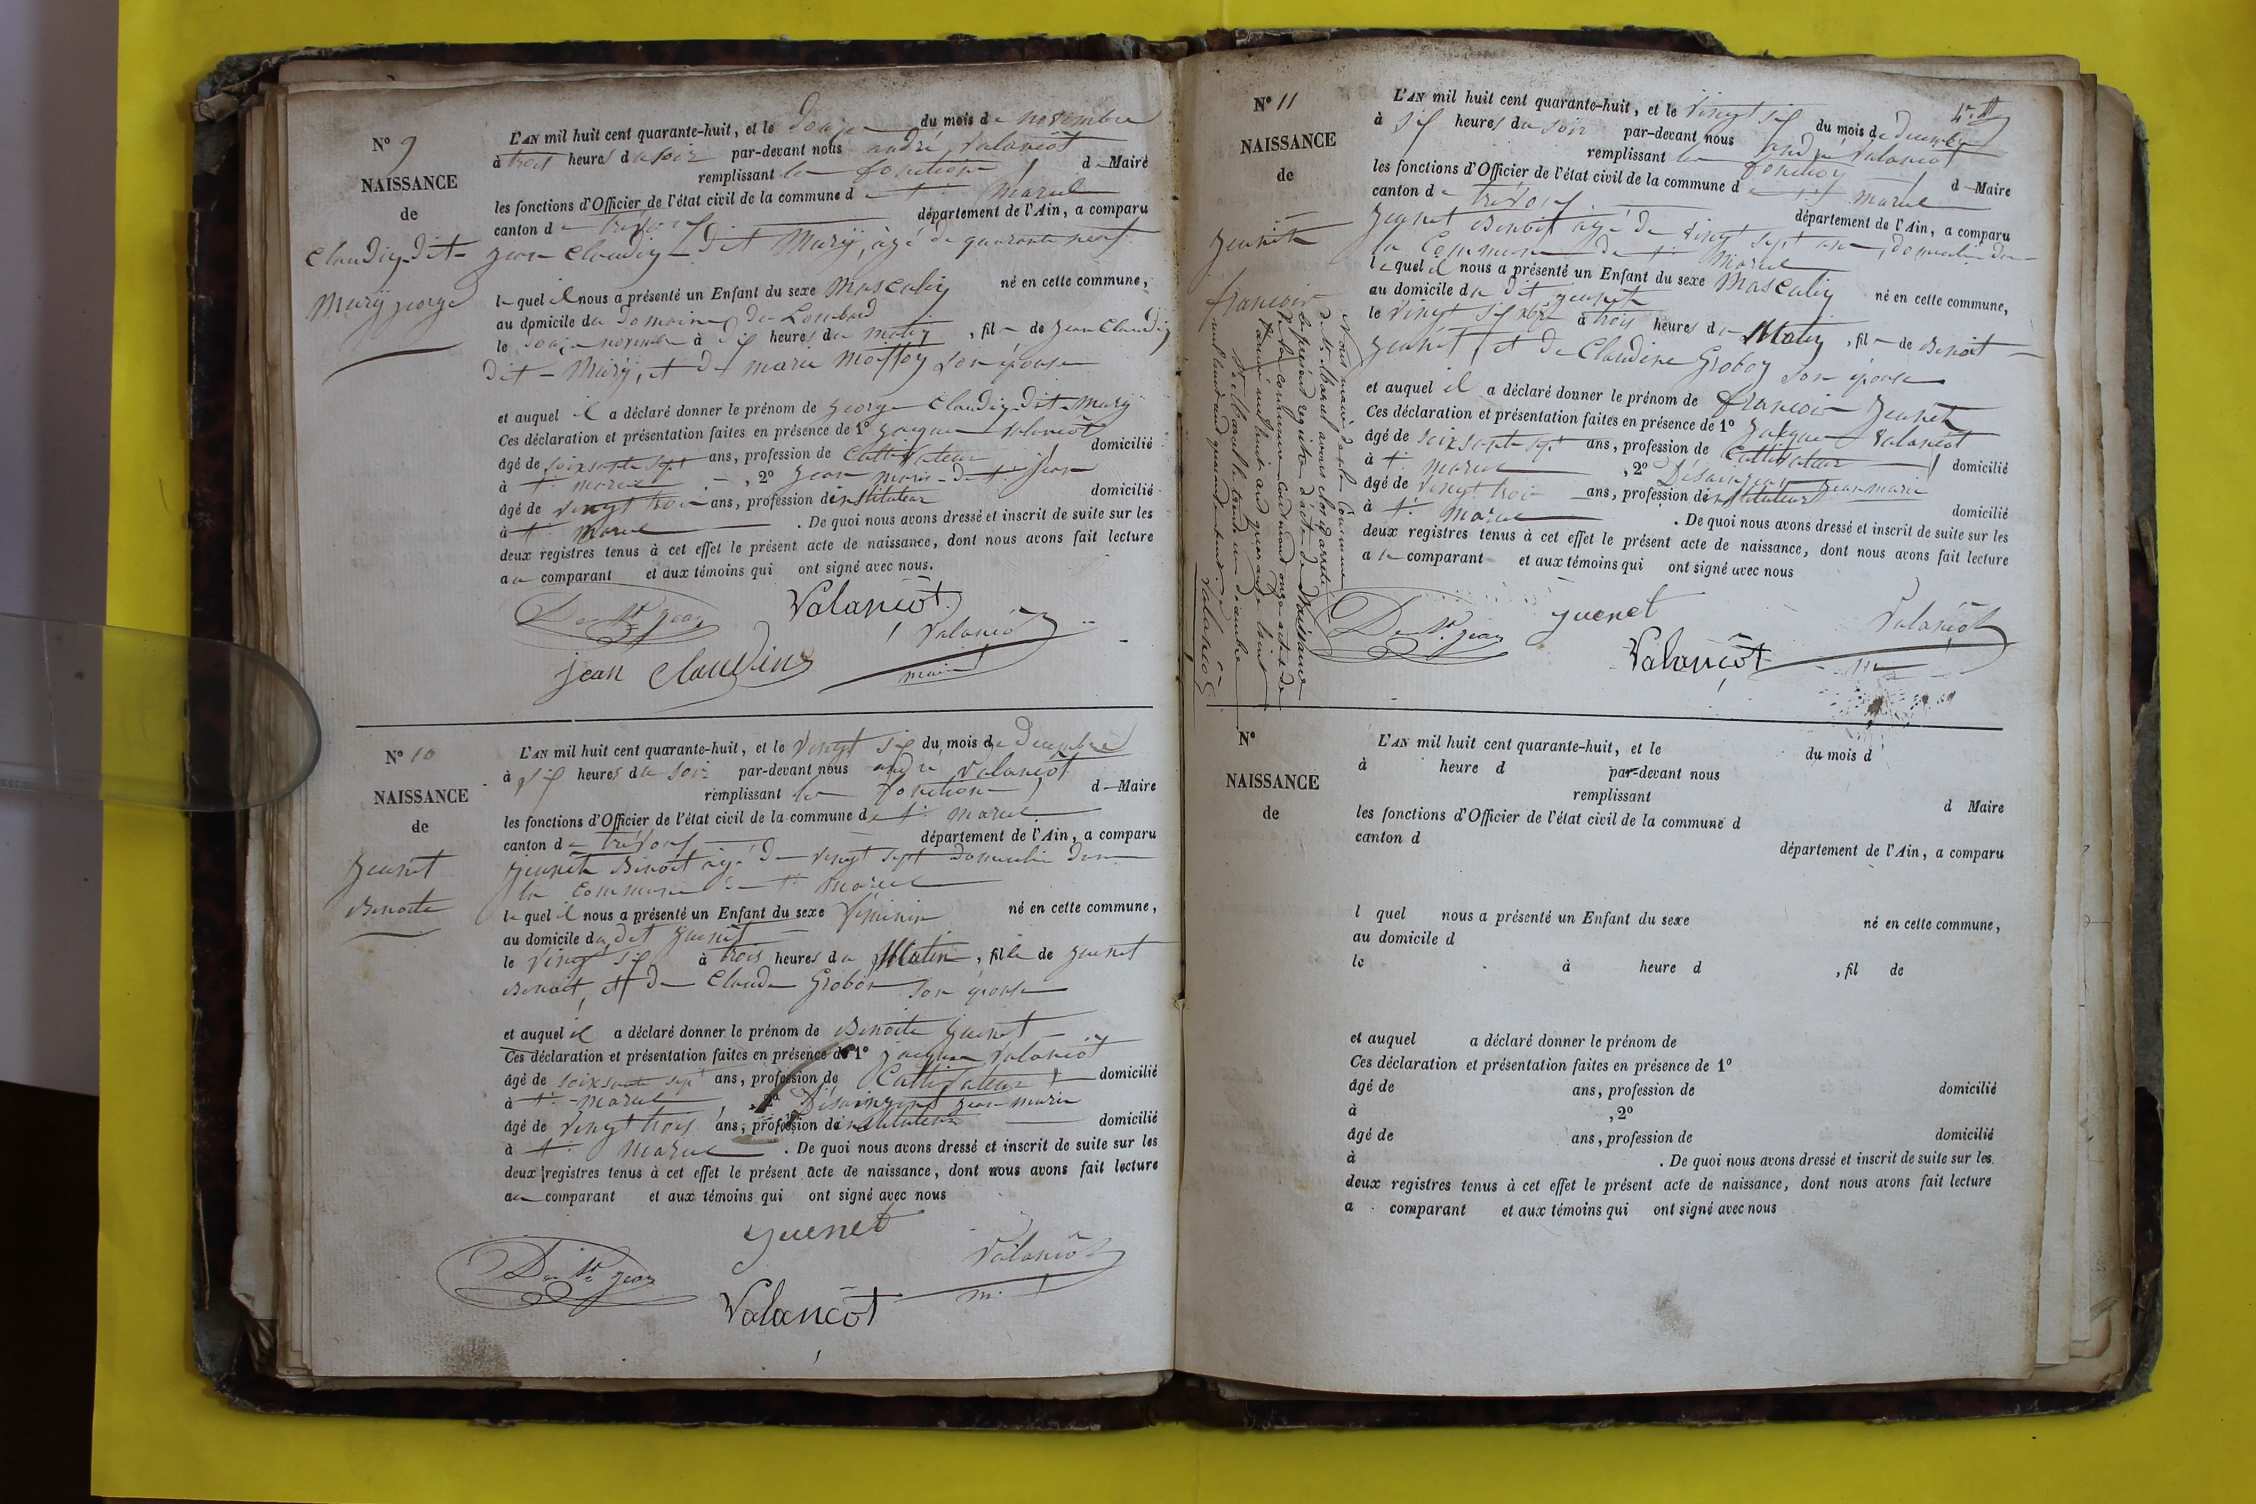 N° 9
NAISSANCE
de
Claudin-dit-
Mury george
L'AN mil huit cent quarante-huit, et le douze du mois de novembre
à trois heures du soir par-devant nous andré Valancot
remplissant les fonction d Maire
les fonctions d'Officier de l'état civil de la commune de St marcel
canton de trévoux département de l'Ain, a comparu
jean claudin dit Mury, âgé de quarante neuf
lequel il nous a présenté un Enfant du sexe Masculin né en cette commune,
au domicile du domaine du Lombard
le douze novembre à dix heures du matin, fils de jean Claudin
dit Mury, et de marie son épouse
et auquel il a déclaré donner le prénom de george claudin-dit-mury
Ces déclaration et présentation faites en présence de 1° jacque valancot
âgé de soixsante sept ans, profession de Cultivateur domicilié
à St marcel, 2° jean marie De St jean
âgé de vingt trois ans, profession d'instituteur domicilié
à St marcel. De quoi nous avons dressé et inscrit de suite sur les
deux registres tenus à cet effet le présent acte de naissance, dont nous avons fait lecture
au comparant et aux témoins qui ont signé avec nous.
De St jean Valancot
jean claudin valancot
maire
N° 10
NAISSANCE
de
jeunet
Benoite
L'AN mil huit cent quarante-huit, et le vingt six du mois de decembre
à six heures du soir par-devant nous andré valancot
remplissant les fonction d Maire
les fonctions d'Officier de l'état civil de la commune de St marcel
canton de trévoux département de l'Ain, a comparu
jeunet Benoit âgé de vingt sept domicilié dans
la commune de St marcel
lequel il nous a présenté un Enfant du sexe féminin né en cette commune,
au domicile du dit jeunet
le vingt six à trois heures du Matin, fille de jeunet
Benoit, et de Claude Grobon son épouse
et auquel il a déclaré donner le prénom de Benoite jeunet
Ces déclaration et présentation faites en présence de 1° jacque valancot
âgé de soixsante sept ans, profession de Cultivateur domicilié
à St marcel, 2° Désaintjean jean marie
âgé de vingt trois ans, profession d'instituteur domicilié
à St marcel. De quoi nous avons dressé et inscrit de suite sur les
deux registres tenus à cet effet le présent acte de naissance, dont nous avons fait lecture
au comparant et aux témoins qui ont signé avec nous
juenet
De St jean Valancot
Valancot m.
N° 11
NAISSANCE
de
jeunet
francois
L'AN mil huit cent quarante-huit, et le vingt six du mois de decembre
à six heures du soir par-devant nous andré valancot
remplissant les fonction d Maire
les fonctions d'Officier de l'état civil de la commune de St marcel
canton de trévoux département de l'Ain, a comparu
jeunet Benoit âgé de vingt sept ans, domicilié dans
la Commune de St Marcel
lequel il nous a présenté un Enfant du sexe Masculin né en cette commune,
au domicile du dit jeunet
le vingt six xbre à trois heures du Matin, fils de Benoit
jeunet, et de Claudine Grobon son épouse
et auquel il a déclaré donner le prénom de francois jeunet
Ces déclaration et présentation faites en présence de 1° jacque valancot
âgé de soixsante sept ans, profession de Cultivateur domicilié
à St marcel, 2° Désaintjean jean marie
âgé de vingt trois ans, profession d'instituteur domicilié
à St marcel. De quoi nous avons dressé et inscrit de suite sur les
deux registres tenus à cet effet le présent acte de naissance, dont nous avons fait lecture
au comparant et aux témoins qui ont signé avec nous
De St jean juenet Valancot
Valancot m
Nous maire de la Commune
de St Marcel avons clos et arrêté
le présent registre d'acte de Naissance
de la commune contenant onze actes de
l'année mil huit cent quarante huit
St Marcel le trente un décembre
mil huit cent quarante huit
Valancot
N°
NAISSANCE
de
L'AN mil huit cent quarante-huit, et le du mois d
à heure d par-devant nous
remplissant d Maire
les fonctions d'Officier de l'état civil de la commune d
canton d département de l'Ain, a comparu
l quel nous a présenté un Enfant du sexe né en cette commune,
au domicile d
le à heure d , fil de
et auquel a déclaré donner le prénom de
Ces déclaration et présentation faites en présence de 1°
âgé de ans, profession de domicilié
à , 2°
âgé de ans, profession de domicilié
à . De quoi nous avons dressé et inscrit de suite sur les
deux registres tenus à cet effet le présent acte de naissance, dont nous avons fait lecture
a comparant et aux témoins qui ont signé avec nous